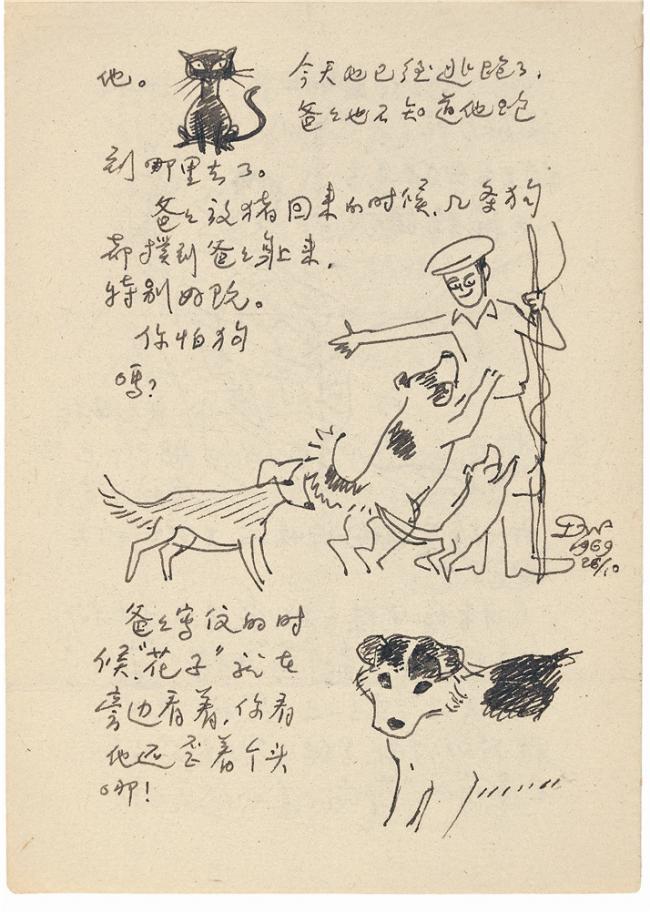 他。 今天他已经逃跑了，
爸爸也不知道他跑
到哪里去了。
爸爸放猪回来的时候，几条狗
都撲到爸爸身上来，
特别好玩。
你怕狗
吗？
1969
26/10
爸爸写信的时
候，“花子”就在
旁边看着，你看
他还歪着个头
哪！